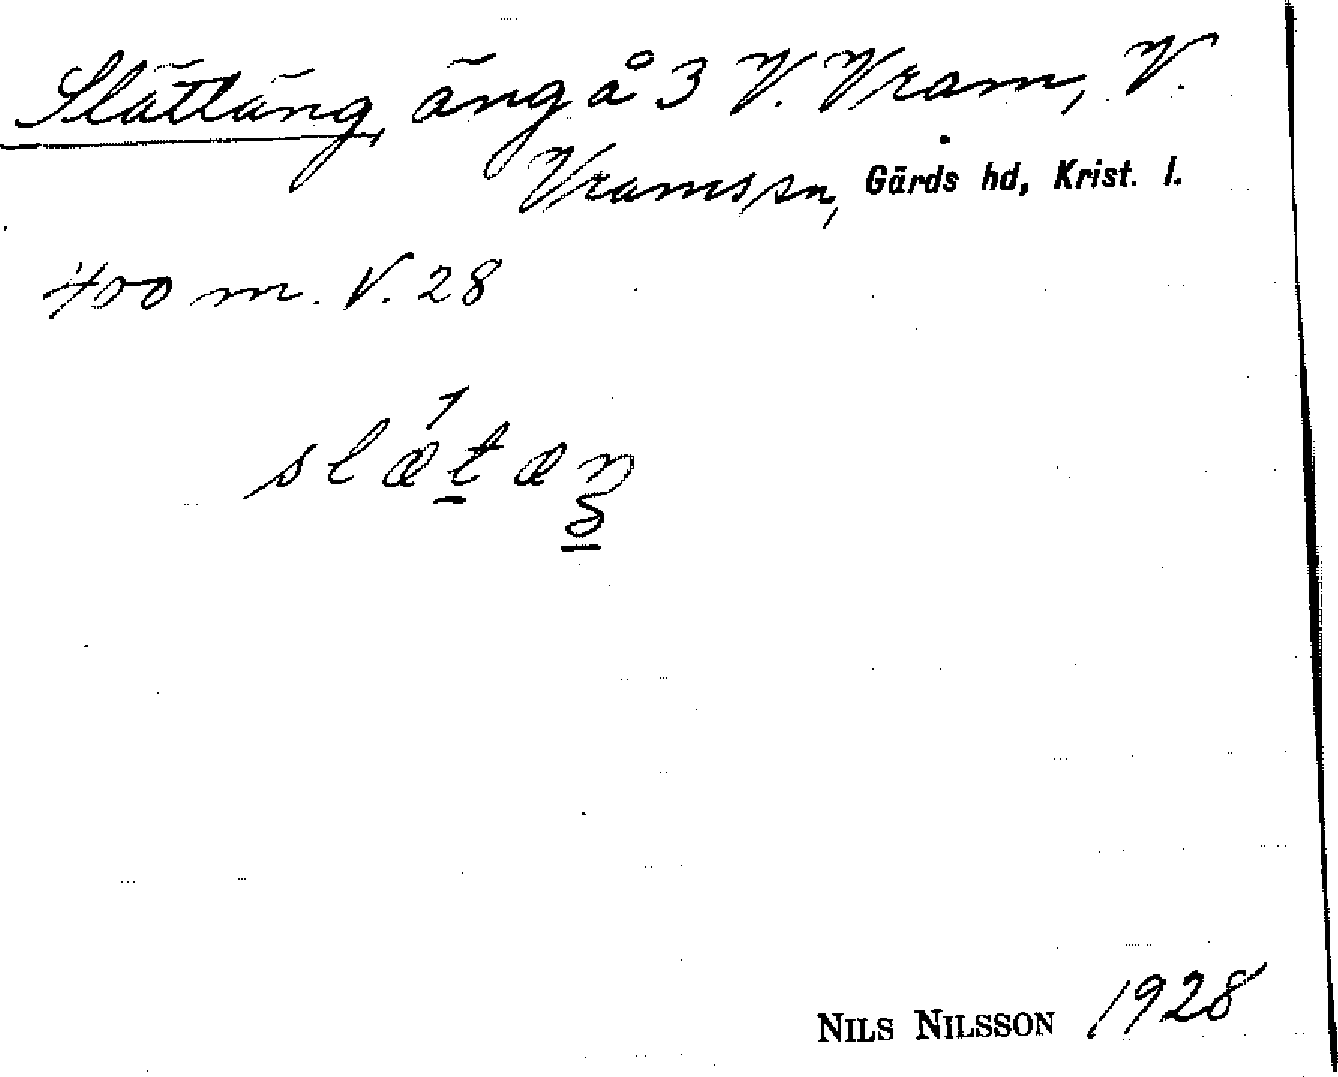 Slättäng, äng å 3 V. Vram, V.
Vrams sn, Gärds hd, Krist. l.
400 m. V. 28
slǽtæŋ
NILS NILSSON 1928